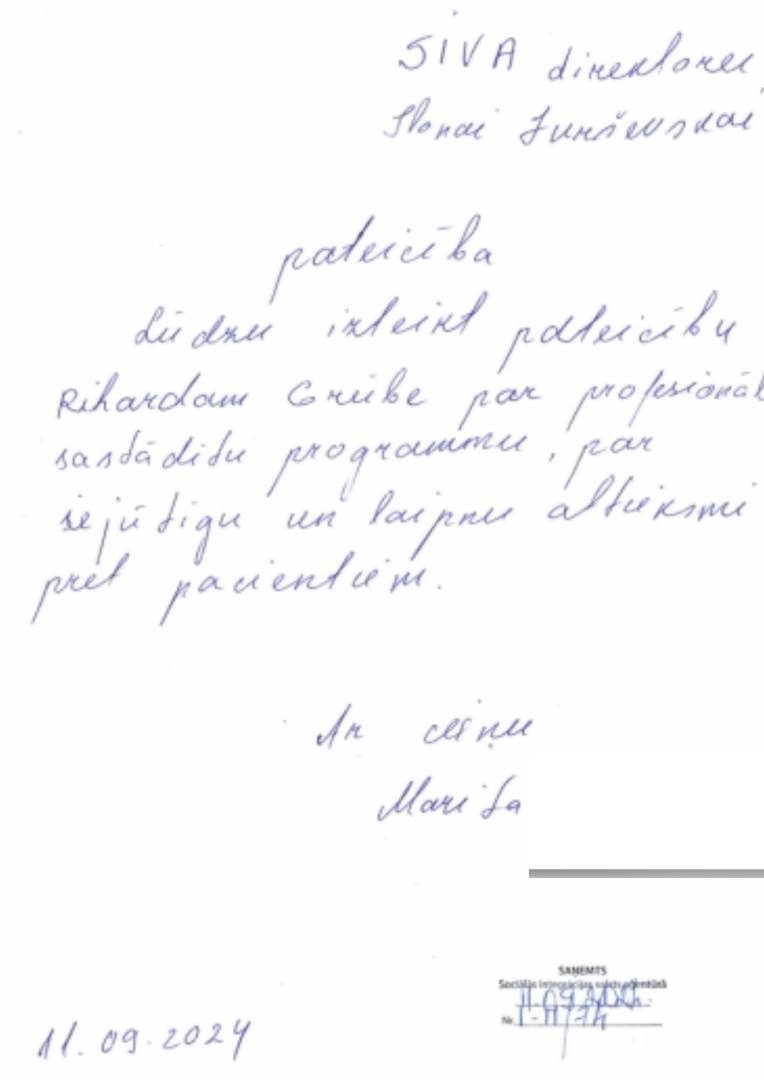 SIVA direktorei,
Ilonai Jurševskai
pateicība
Lūdzu izteikt pateicību
Rihardam Grūbe par profesionāl
sastādītu programmu, par
iejūtīgu un laipnu attieksmi
pret pacientiem.
Ar cieņu
Marita
SAŅEMTS
Sociālās integrācijas valsts aģentūrā
11.09.2024.
Nr.
11.09.2024